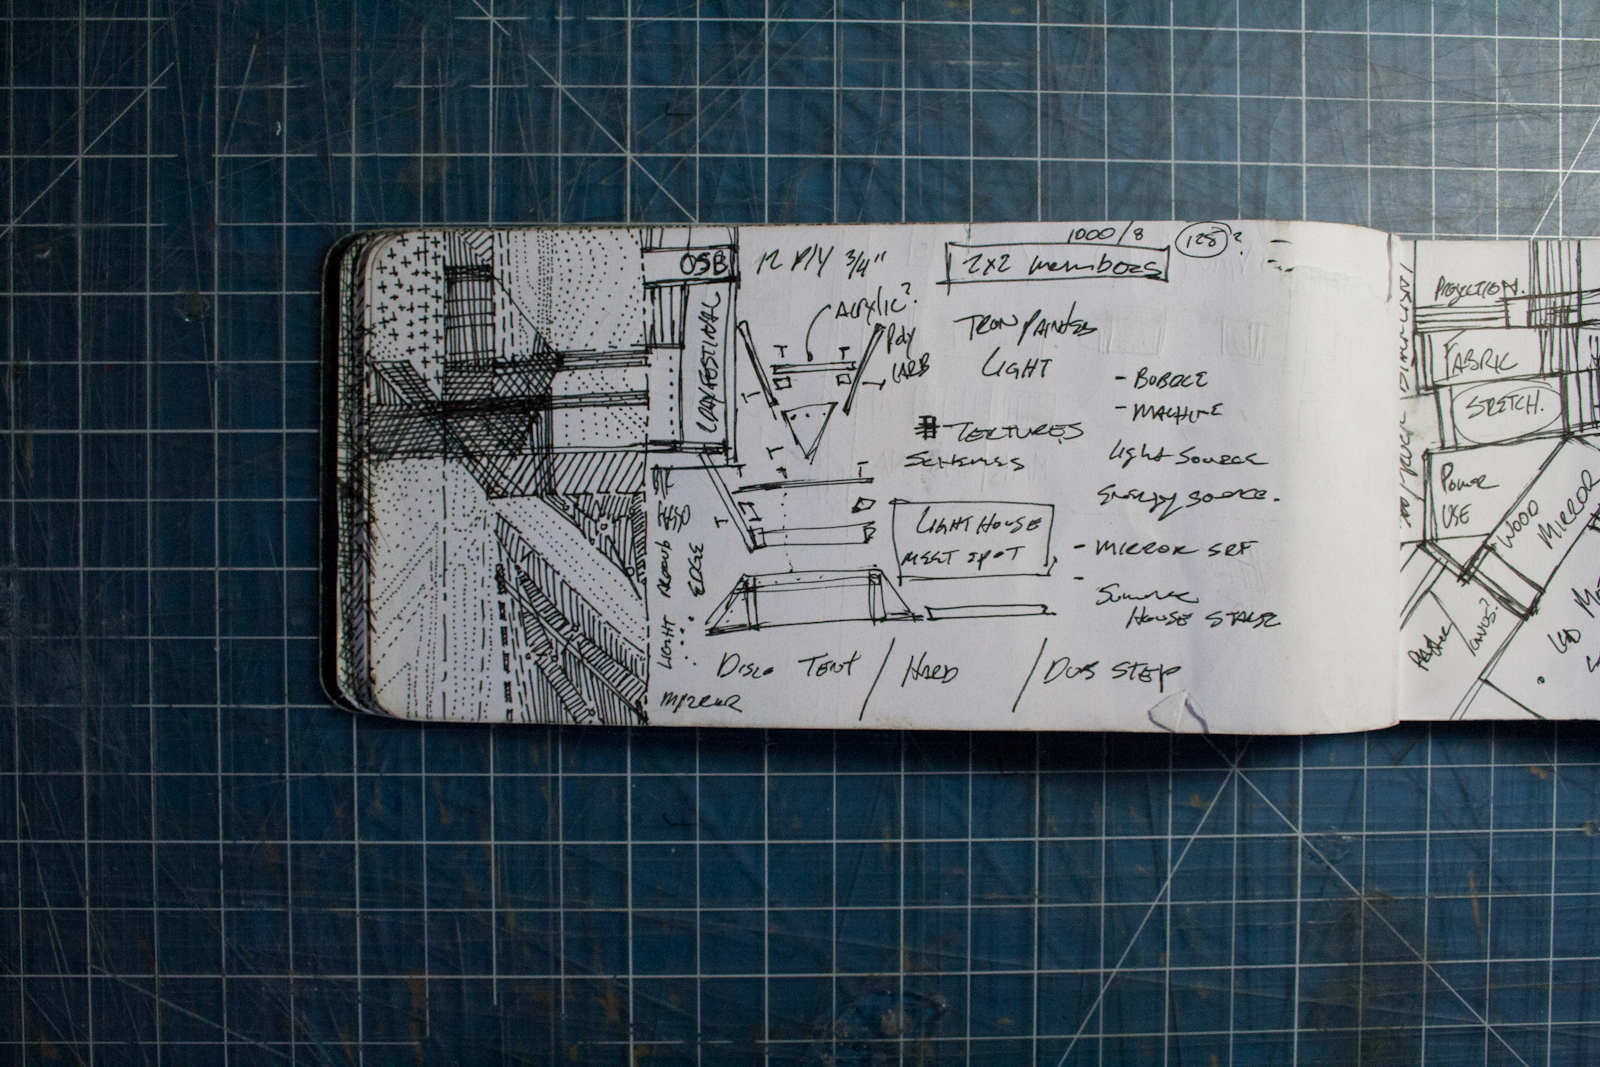 1000/8
128?
OSB
12 PLY 3/4"
2x2 members
ACRYLIC?
Poly
CARB
TRON PAINTED
LIGHT
- BUBBLE
- MACHINE
TEXTURES
SCHEMES
Light Source
Energy source.
LIGHT HOUSE
MEET SPOT
- MIRROR SRF
Summer
House Stage
LIGHT AROUND
EDGE
Disco Tent / HARD / DUB STEP
MIRROR
PROJECTION.
FABRIC
STRETCH.
Power
USE
WOOD
MIRROR
LED